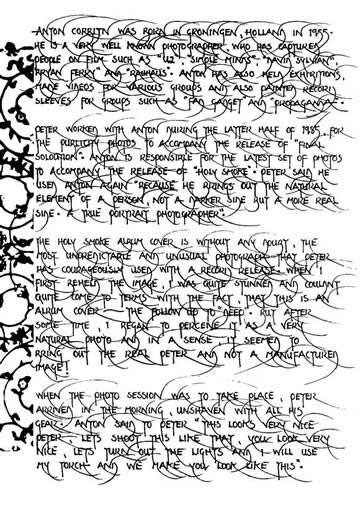 ANTON CORBIJN WAS BORN IN GRONINGEN, HOLLAND IN 1955.
HE IS A VERY WELL KNOWN PHOTOGRAPHER WHO HAS CAPTURED
PEOPLE ON FILM SUCH AS "U2" "SIMPLE MINDS" "DAVID SYLVIAN"
"BRYAN FERRY" AND "BAUHAUS". ANTON HAS ALSO HELD EXHIBITIONS,
MADE VIDEOS FOR VARIOUS GROUPS AND ALSO PAINTED RECORD
SLEEVES FOR GROUPS SUCH AS "FAD GADGET" AND "PROPAGANDA".
PETER WORKED WITH ANTON DURING THE LATTER HALF OF 1985, FOR
THE PUBLICITY PHOTOS TO ACCOMPANY THE RELEASE OF "FINAL
SOLOUTION". ANTON IS RESPONSIBLE FOR THE LATEST SET OF PHOTOS
TO ACCOMPANY THE RELEASE OF "HOLY SMOKE". PETER SAID HE
USED ANTON AGAIN "BECAUSE HE BRINGS OUT THE NATURAL
ELEMENT OF A PERSON, NOT A DARKER SIDE BUT A MORE REAL
SIDE. A TRUE PORTRAIT PHOTOGRAPHER".
THE HOLY SMOKE ALBUM COVER IS WITHOUT ANY DOUBT, THE
MOST UNPREDICTABLE AND UNUSUAL PHOTOGRAPH THAT PETER
HAS COURAGEOUSLY USED WITH A RECORD RELEASE. WHEN I
FIRST BEHELD THE IMAGE, I WAS QUITE STUNNED AND COULDN'T
QUITE COME TO TERMS WITH THE FACT, THAT THIS IS AN
ALBUM COVER — THE FOLLOW UP TO DEEP. BUT AFTER
SOME TIME, I BEGAN TO PERCEIVE IT AS A VERY
NATURAL PHOTO AND IN A SENSE IT SEEMED TO
BRING OUT THE REAL PETER AND NOT A MANUFACTURED
IMAGE!
WHEN THE PHOTO SESSION WAS TO TAKE PLACE, PETER
ARRIVED IN THE MORNING, UNSHAVEN WITH ALL HIS
GEAR. ANTON SAID TO PETER "THIS LOOKS VERY NICE
PETER, LETS SHOOT THIS LIKE THAT, YOU LOOK VERY
NICE, LET'S TURN OUT THE LIGHTS AND I WILL USE
MY TORCH AND WE MAKE YOU LOOK LIKE THIS".